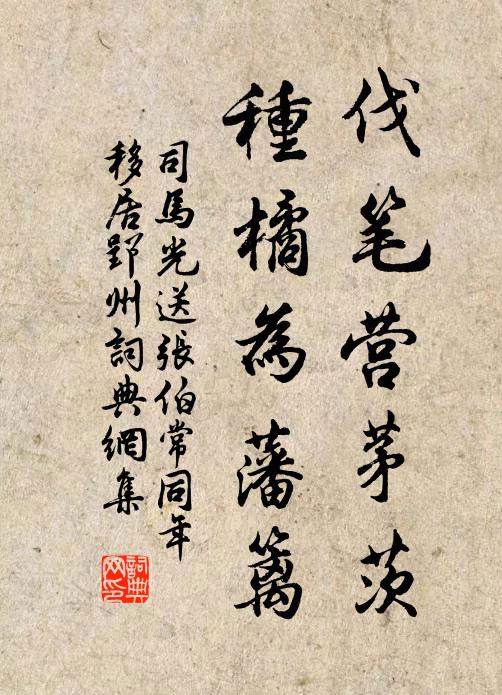 伐笔营茅茨
種橘為藩篱
司馬光送張伯常同年
移居郢州詞典網集
詞典网印